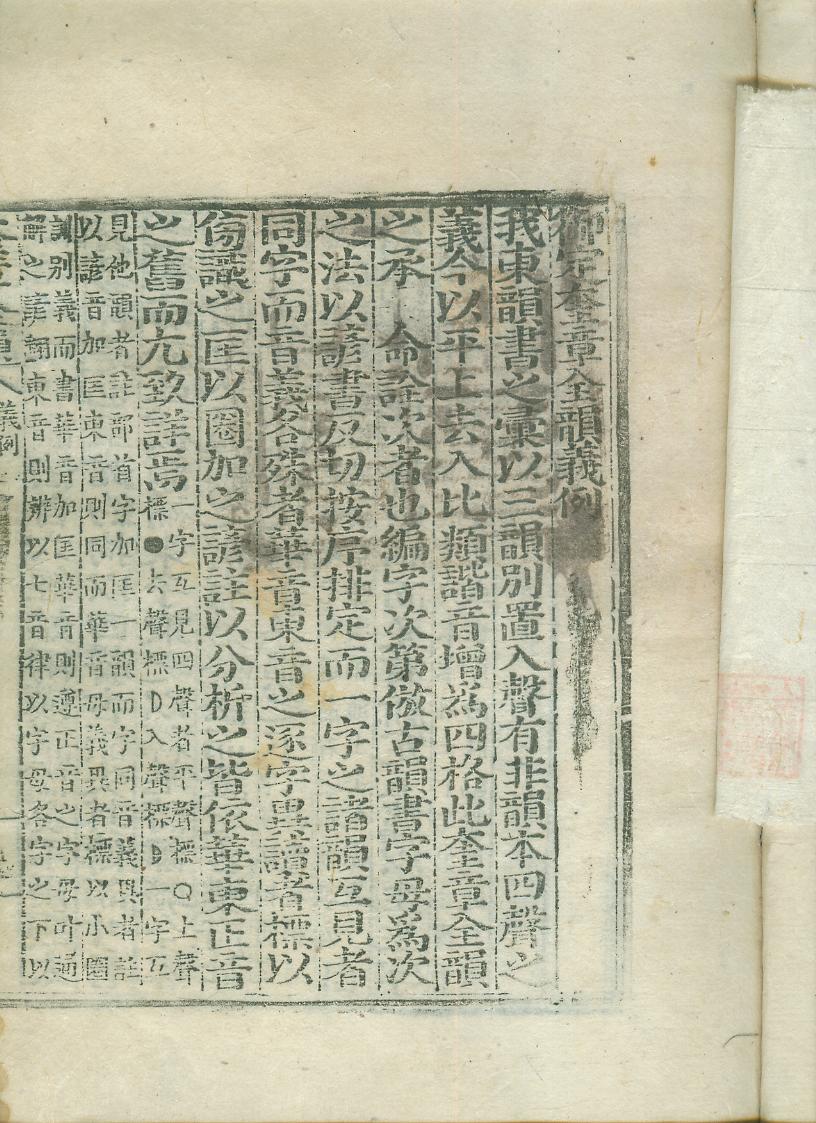 御定奎章全韻義例
我東韻書之彙以三韻別置入聲有非韻本四聲之
義今以平上去入比類諧音增為四格此奎章全韻
之承 命詮次者也編字次第倣古韻書字母為次
之法以諺書反切按序排定而一字之諸韻互見者
同字而音義各殊者華音東音之逐字異讀者標以
傍識之匡以圈加之諺註以分析之皆依華東正音
之舊而尤致詳焉
一字互見四聲者平聲標○上聲
標●去聲標D入聲標◗一字互
見他韻者註部首字加匡一韻而字同音義異者註
以諺音加匡東音則同而華音母義異者標以小圈
識別義而書華音加匡華音則遵正音之字母叶通
解之諺翻東音則辨以七音律以字母各字之下以
全韻 義例